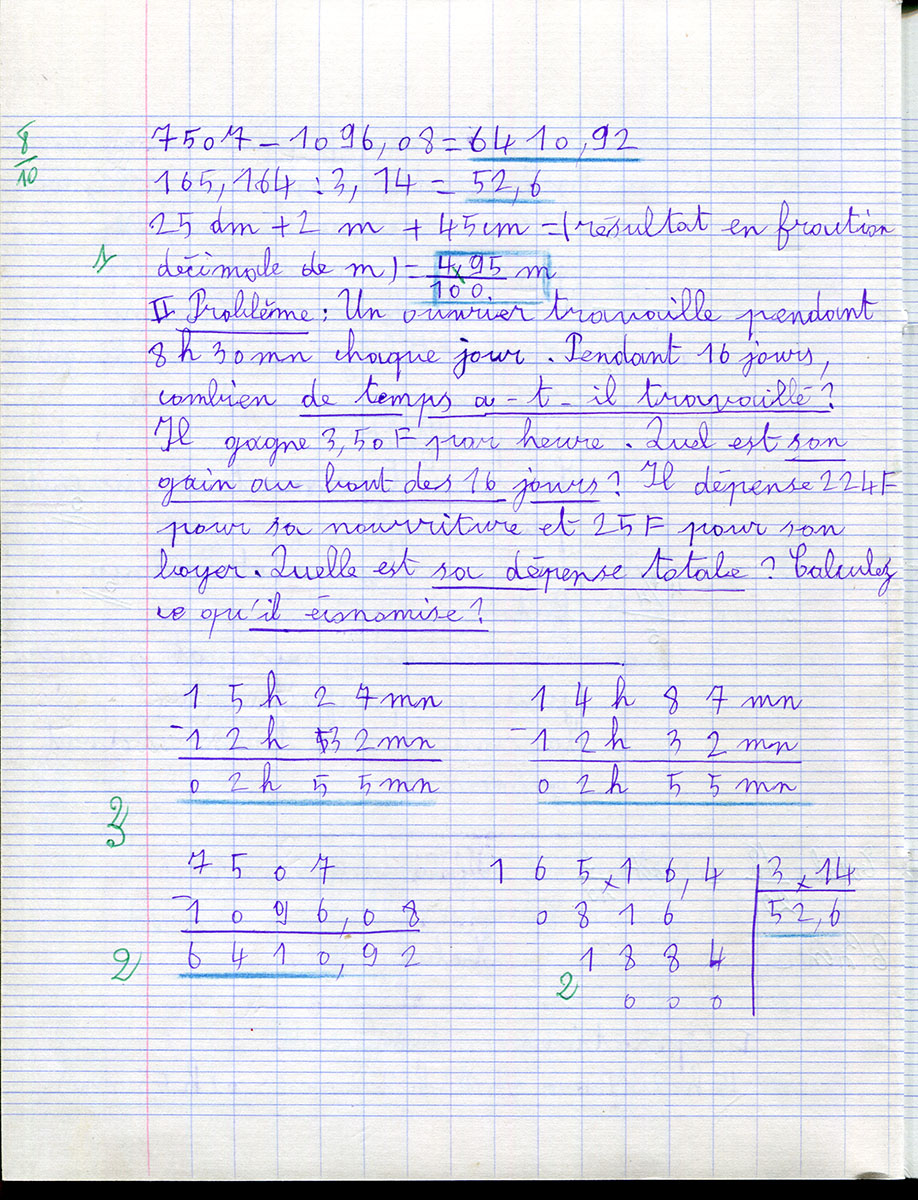 8/10
7507 - 1096,08 = 6410,92
165,164 : 3,14 = 52,6
25 dm + 2 m + 45cm = (résultat en fraction
1
décimale de m) = 495/100 m
II Problème : Un ouvrier travaille pendant
8 h 30 mn chaque jour. Pendant 16 jours,
combien de temps a-t-il travaillé ?
Il gagne 3,50 F par heure. Quel est son
gain au bout des 16 jours ? Il dépense 224 F
pour sa nourriture et 25 F pour son
loyer. Quelle est sa dépense totale ? Calculez
ce qu'il économise ?
15h 27mn 14h 87mn
-12h 32mn -12h 32mn
02h 55mn 02h 55mn
3
7507 165,16,4 3,14
-1096,08 0816 52,6
6410,92 1884
2
2 000